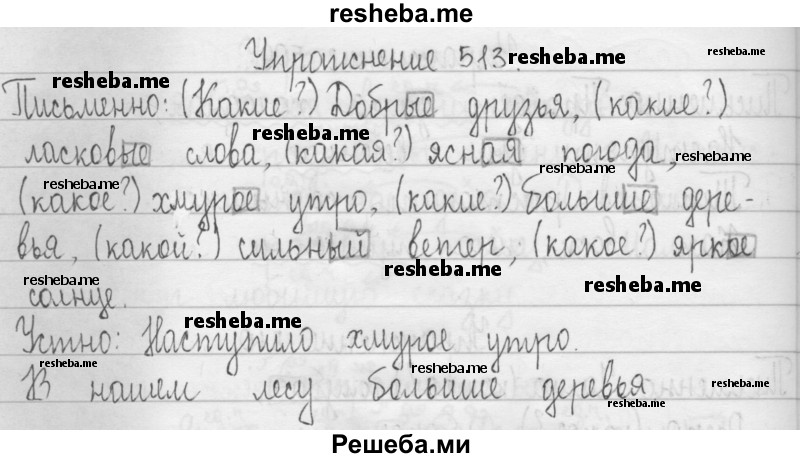 resheba.me
Упражнение 513. resheba.me
resheba.me
resheba.me
Письменно: (Какие?) Добрые друзья, (какие?)
resheba.me
ласковые слова, (какая?) ясная погода,
resheba.me
resheba.me
resheba.me
(какое?) хмурое утро, (какие?) большие дере-
вья, (какой?) сильный ветер, (какое?) яркое
resheba.me
resheba.me
resheba.me
солнце.
resheba.me
Устно: Наступило хмурое утро.
resheba.me
resheba.me
resheba.me
В нашем лесу большие деревья
resheba.me
Решеба.ми